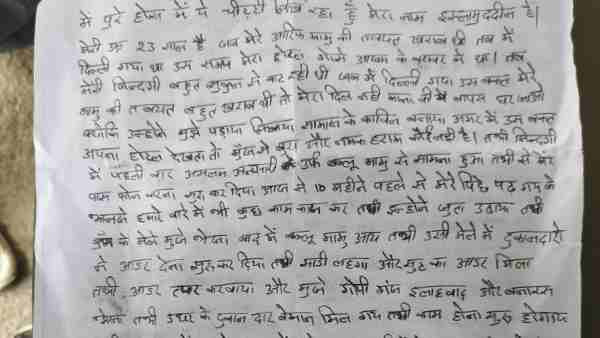 में पुरे होश में ये चीठ्ठी लिख रहा हूँ मेरा नाम इस्लामुद्दीन है।
मेरी उम्र 23 साल है जब मेरे आरिफ मामु की तबियत खराब थी तब में
दिल्ली गया था उस समय मेरा होटल गोल्डे आबाद के बराबर में था। तब
मेरी जिन्दगी बहुत सुकुन से कट रही थी जब में दिल्ली गया उस वक्त मेरे
मामु की तबयत बहुत खराब थी तो मेरा दिल नही माना की में वापस घर जाओ
क्योंकि उन्होने मुझे पढ़ाया लिखाया सामाज के काबिल बनाया अगर में उस वक्त
अपना होटल देखता तो मुझ से बुरा और नमक हराम कोई नही है। तभी जिन्दगी
में पहली बार असलम उर्फ कल्लु मामु से सामना हुआ तभी से मेरे
पास फोन करना शुरु कर दिया आज से 10 महीने पहले से मेरे पिछे पड़ गए के
हमारे बारे में भी कुछ काम काज कर तभी इन्होने जुता उठाया तभी
के मेले मुझे भेजा बाद में कल्लु मामु आए तभी उसी मेले में दुकानदारो
ने आडर देना शुरु कर दिया तभी साडी लहगा और सुट का आडर मिला
तभी आडर तयार करवाया और मुझे गोपी गंज इलाहबाद और बनारस
भेजा तभी उधर के दुकान दार बेमान मिल गए तभी काम होना शुरु होगया